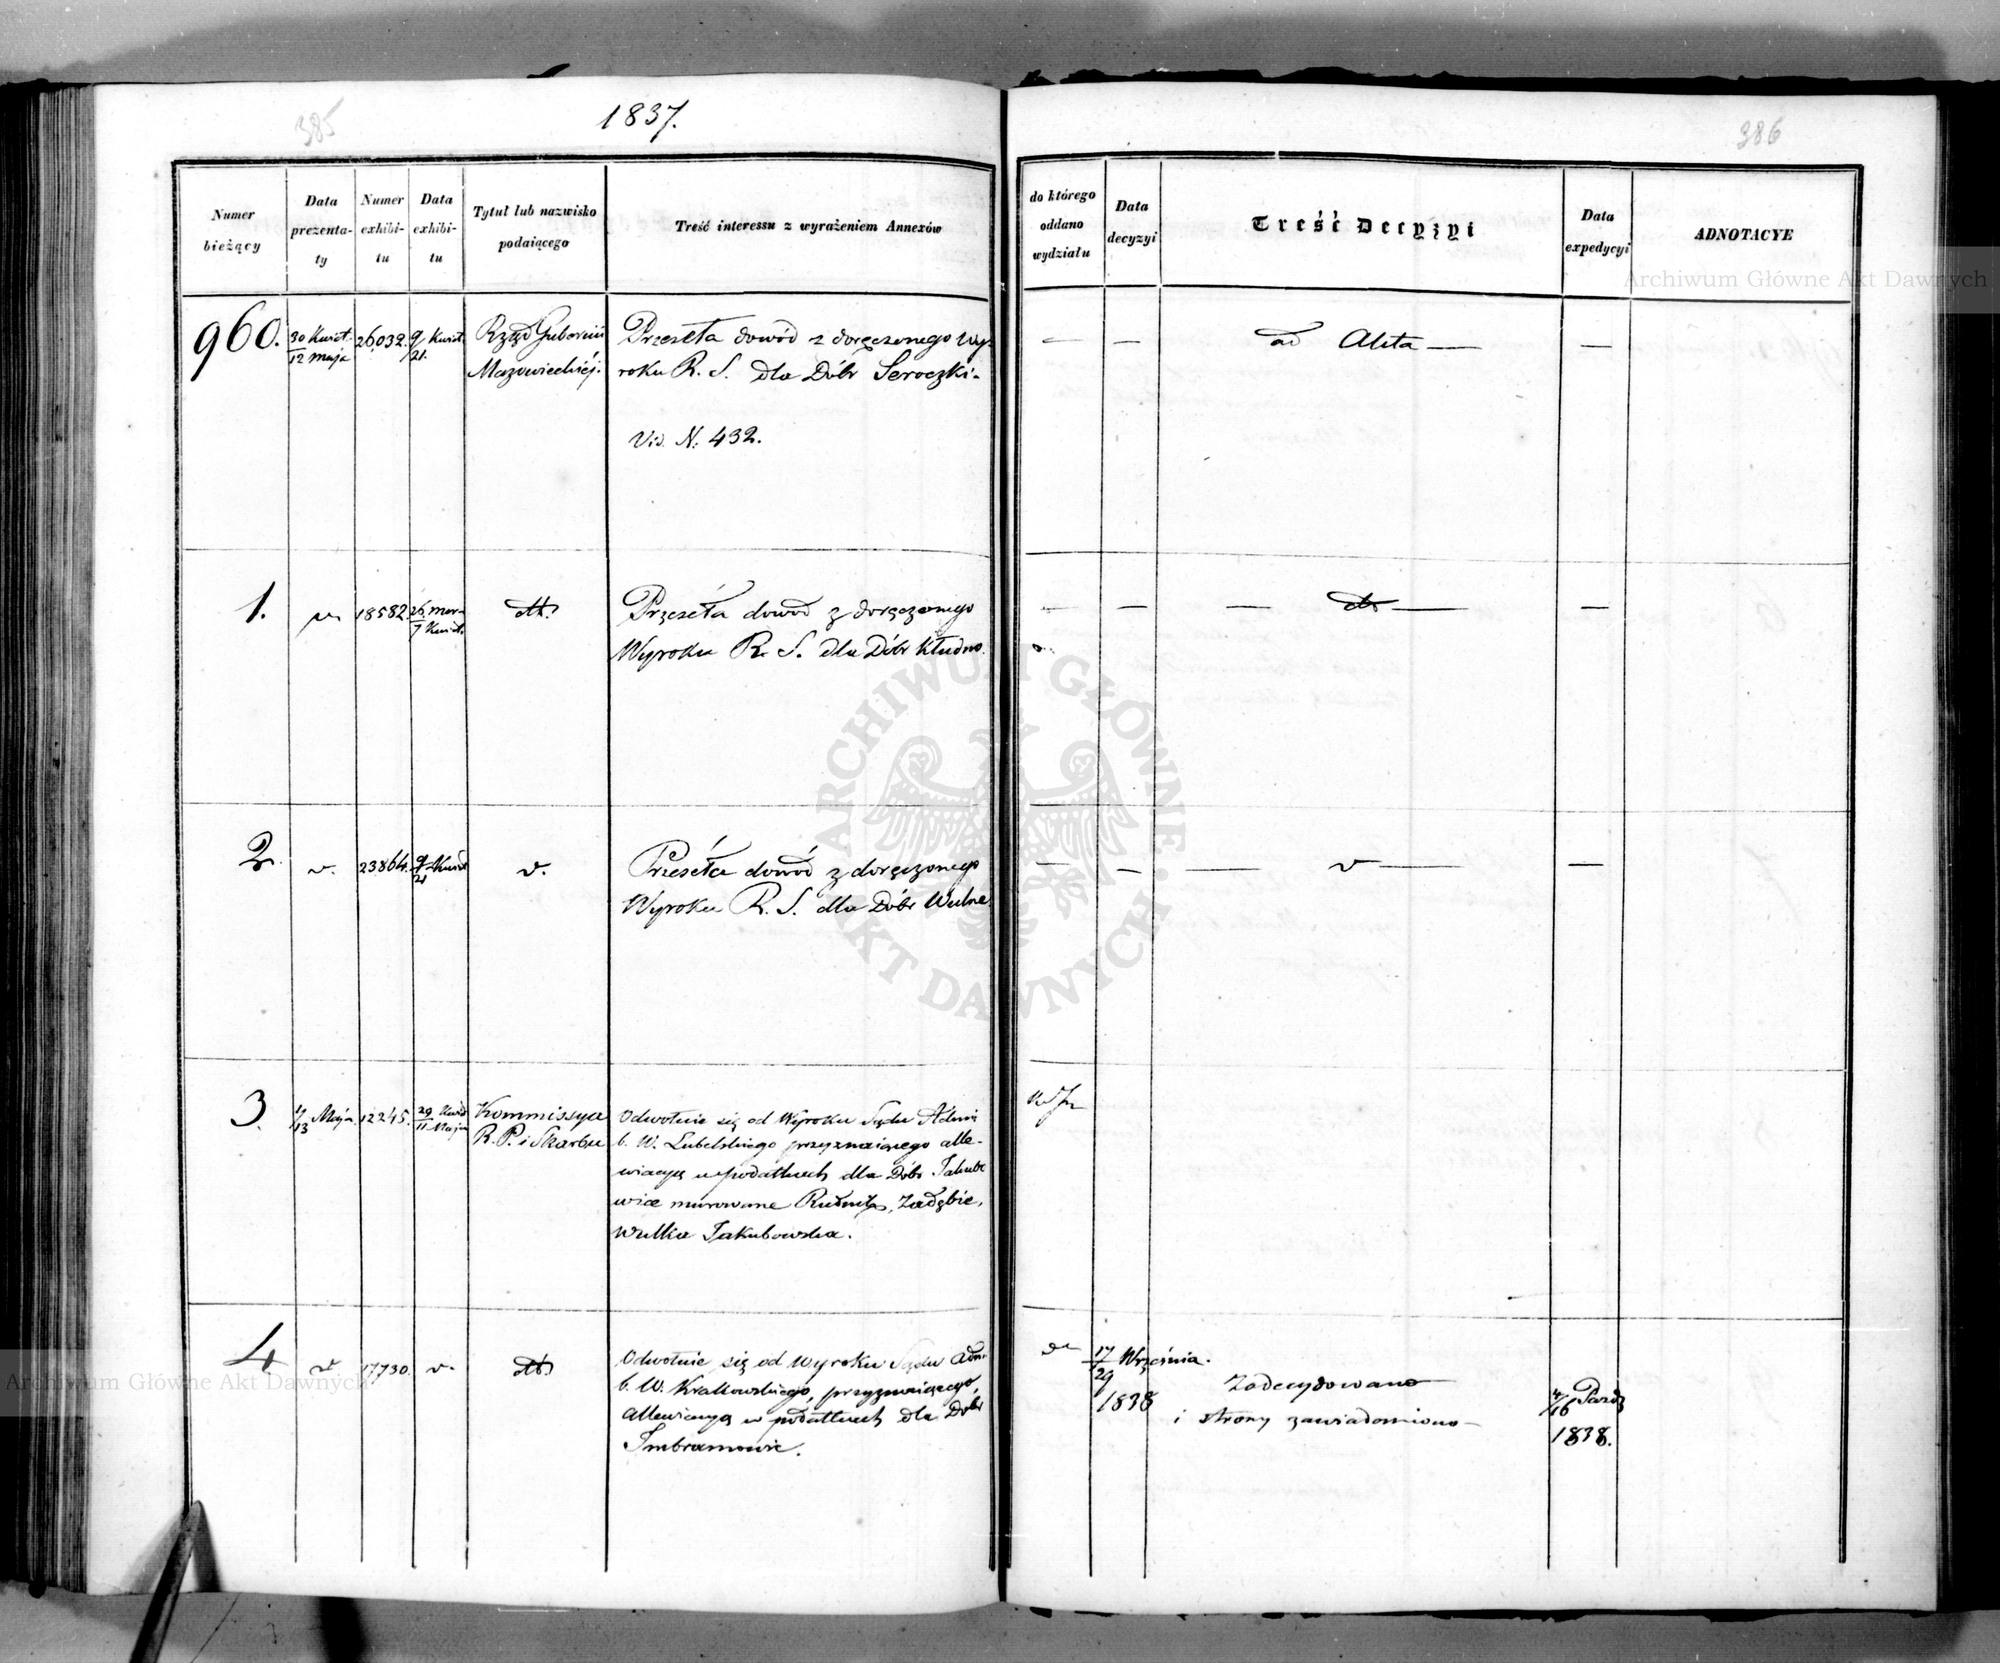 385
1837.
386
Numer bieżący
Data prezenta-ty
Numer exhibi-tu
Data exhibi-tu
Tytuł lub nazwisko podaiącego
Treść interessu z wyrażeniem Annexów
do którego oddano wydziału
Data decyzyi
Treść Decyzyi
Data expedycyi
ADNOTACYE
960. 30 Kwiet. / 12 Maja 26,032. 9/21. Kwiet.
Rząd Gubernii
Mazowieckiéj.
Przeseła dowód z doręczonego Wy-
roku R. S. dla Dóbr Seroczki-
Vid. N. 432.
— — ad Akta — —
1. v. 18582. 26. Mar. / 7 Kwiet. dtt.
Przeseła dowód z doręczonego
Wyroku R. S. dla Dóbr Kludno.
— — — dto — —
2. v. 23864. 9/21 Kwiet v.
Przeseła dowód z doręczonego
Wyroku R. S. dla Dóbr Wulne.
— — — v — —
3. 1/13 Maja 12245. 29 Kwie / 11 Maja
Kommissya
R. P. i Skarbu
Odwołuie się od Wyroku Sądu Admi
b. W. Lubelskiego przyznaiącego alle-
wiacyą w podatkach dla Dóbr Jakubo
wice murowane Rudnik, Zadębie,
Wulka Jakubowska.
4 v 17730. v. dtt.
Odwołuie się od Wyroku Sądu Adm.
b. W. Krakowskiego, przyznaiącego,
Allewiacyą w podatkach dla Dóbr
Imbramowic.
17/29 Września.
1838
Zadecydowano
i strony zawiadomiono—
4/16 Paźdz
1838.
Archiwum Główne Akt Dawnych
ARCHIWUM GŁÓWNE AKT DAWNYCH
Archiwum Główne Akt Dawnych